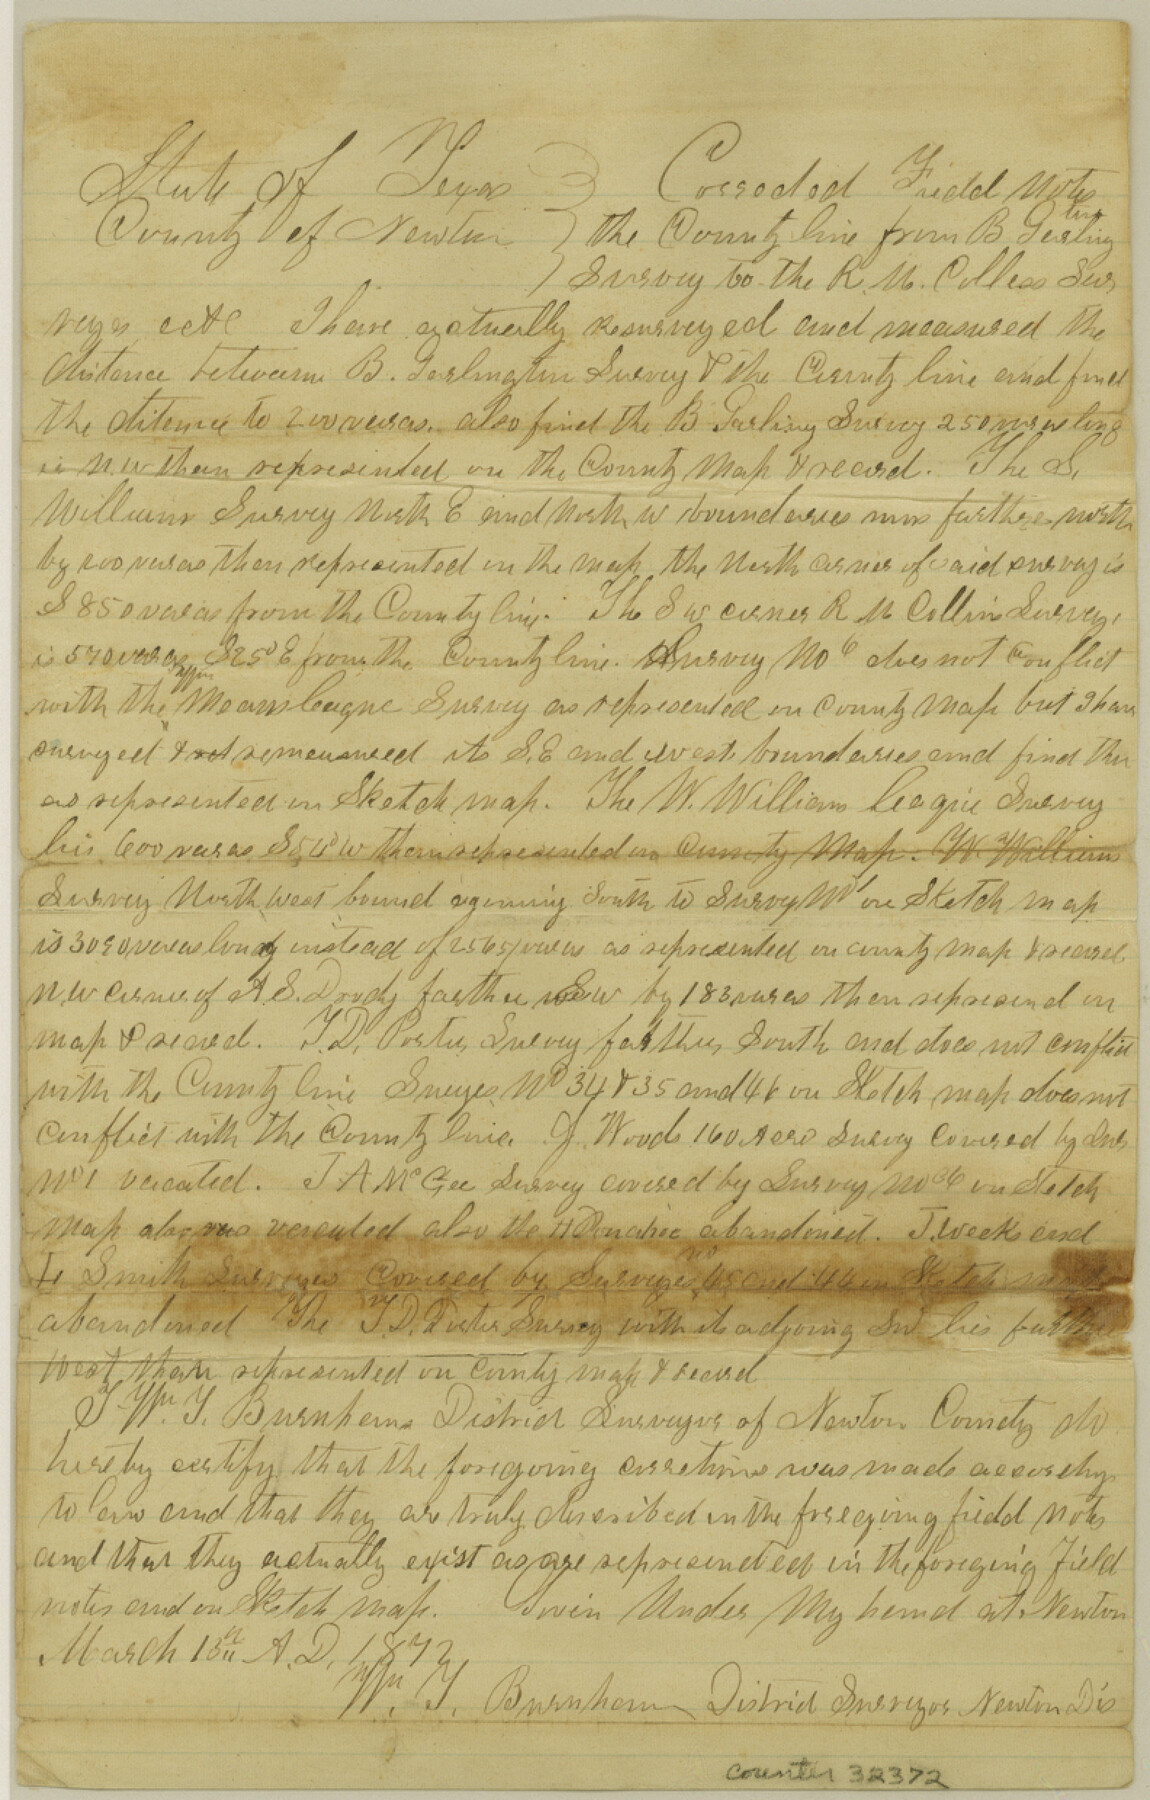 State of Texas } Corrected Field Notes
County of Newton } the County line from B Tarling
ton
} Survey to the R. M. Colless Sur
veyes, &c I have actually resurveyed and measured the
distance between B. Tarlington Survey & the County line and find
the ditence to 200 varas. also find the B Tarling Survey 250 varas long
 N.W than represented on the County Map & record. The S.
Williams Survey North E and North W boundaries runs farther north
by 200 varas then represented on the map the North corner of said survey is
S 850 varas from the County line. The S W corner R M Collins Survey,
is 570 varas S25°E from the County line. Survey No 6 does not conflict
with the Wm Means league Survey as represented on County Map but I have
surveyed & remeasured its S,E and west boundaries and find them
as represented on Sketch map. The W. Williams league Survey
lies 600 varas S54°W then represented on County Map. W Williams
Survey North west bound agoining South to Survey No 1 on Sketch map
is 3090 varas long instead of 2565 varas as represented on county map & record
N,W corner of A. S. Doody farther SW by 183 varas then represend on
map & record. T.D. Porter Survey farther South and does not conflict
with the County line Surveyes No 34 & 35 and 46 on Sketch map does not
conflict with the County line. J. Woods 160 Acre Survey Covered by Sur
No 1 vacated. J A McGee Survey covered by Survey No 36 on Sketch
Map also vacated also the H Donahoe abandoned. J. Weeks and
 Smith Surveyes Covered by Surveyes No 45 and 46 on Sketch map
abandoned The T.D. Porter Survey with its adgoing SW lies farther
West than represented on County map & record
I Wm. Y. Burnham District Surveyor of Newton County do
hereby certify that the foregoing corrections was made acording
to law and that they are truly discribed in the foregoing field notes
and that they actually exist as are represented in the foregoing Field
notes and on Sketch map. Given Under My hand at Newton
March 13th A.D. 1872
Wm. Y. Burnham District Surveyor Newton Dis
counter 32372